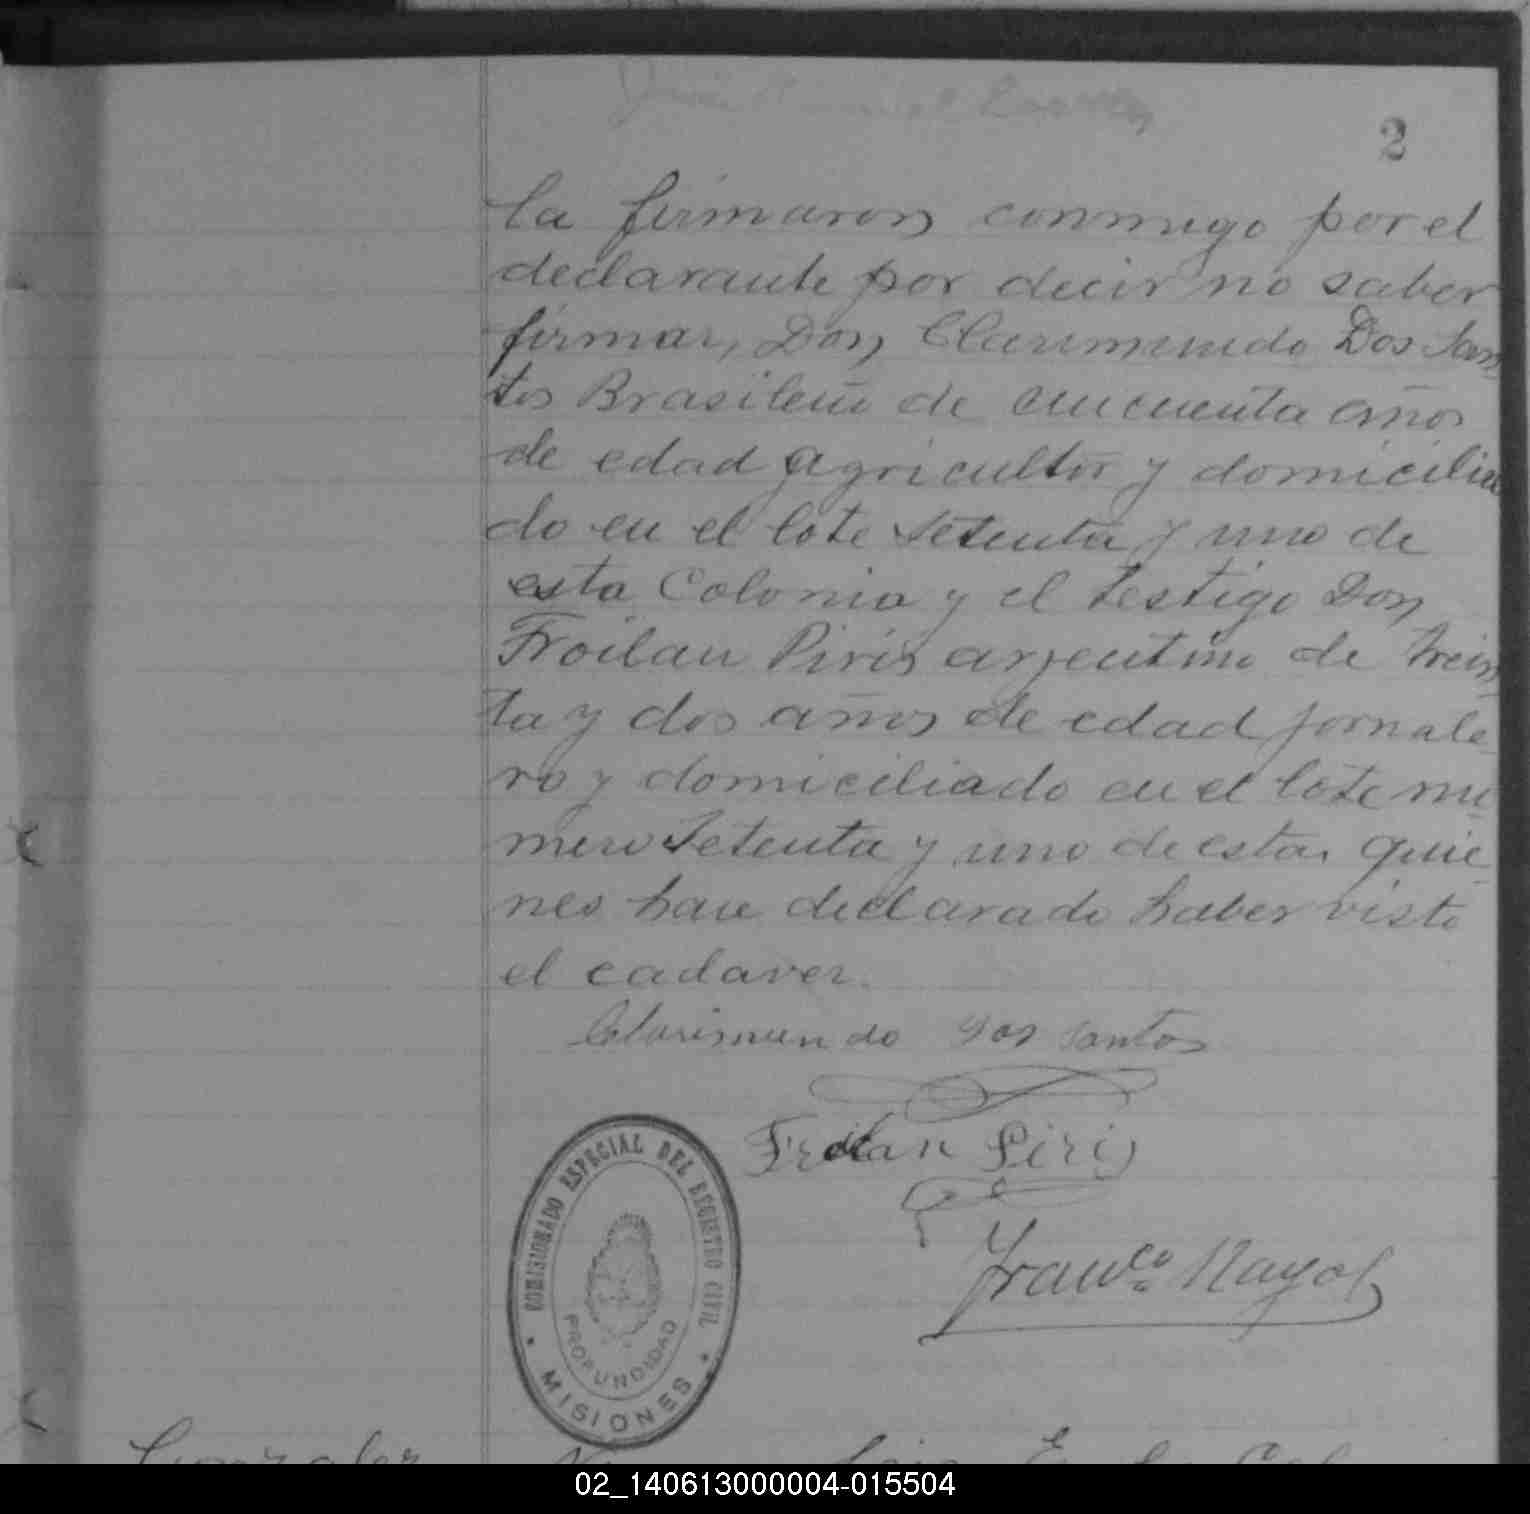 2
la firmaron conmigo por el
declarante por decir no saber
firmar, Don Clarimundo Dos San
tos Brasileño de cincuenta años
de edad agricultor y domicilia
do en el lote Setenta y uno de
esta Colonia y el testigo Don
Froilan Piris argentino de trein
ta y dos años de edad jornale
ro y domiciliado en el lote nu
mero Setenta y uno de esta, quie
nes han declarado haber visto
el cadaver.
Clarimundo Dos Santos
Froilan Piris
COMISIONADO ESPECIAL DEL REGISTRO CIVIL
PROFUNDIDAD
MISIONES
Franco. Mayol
Gonzalez
02_140613000004-015504